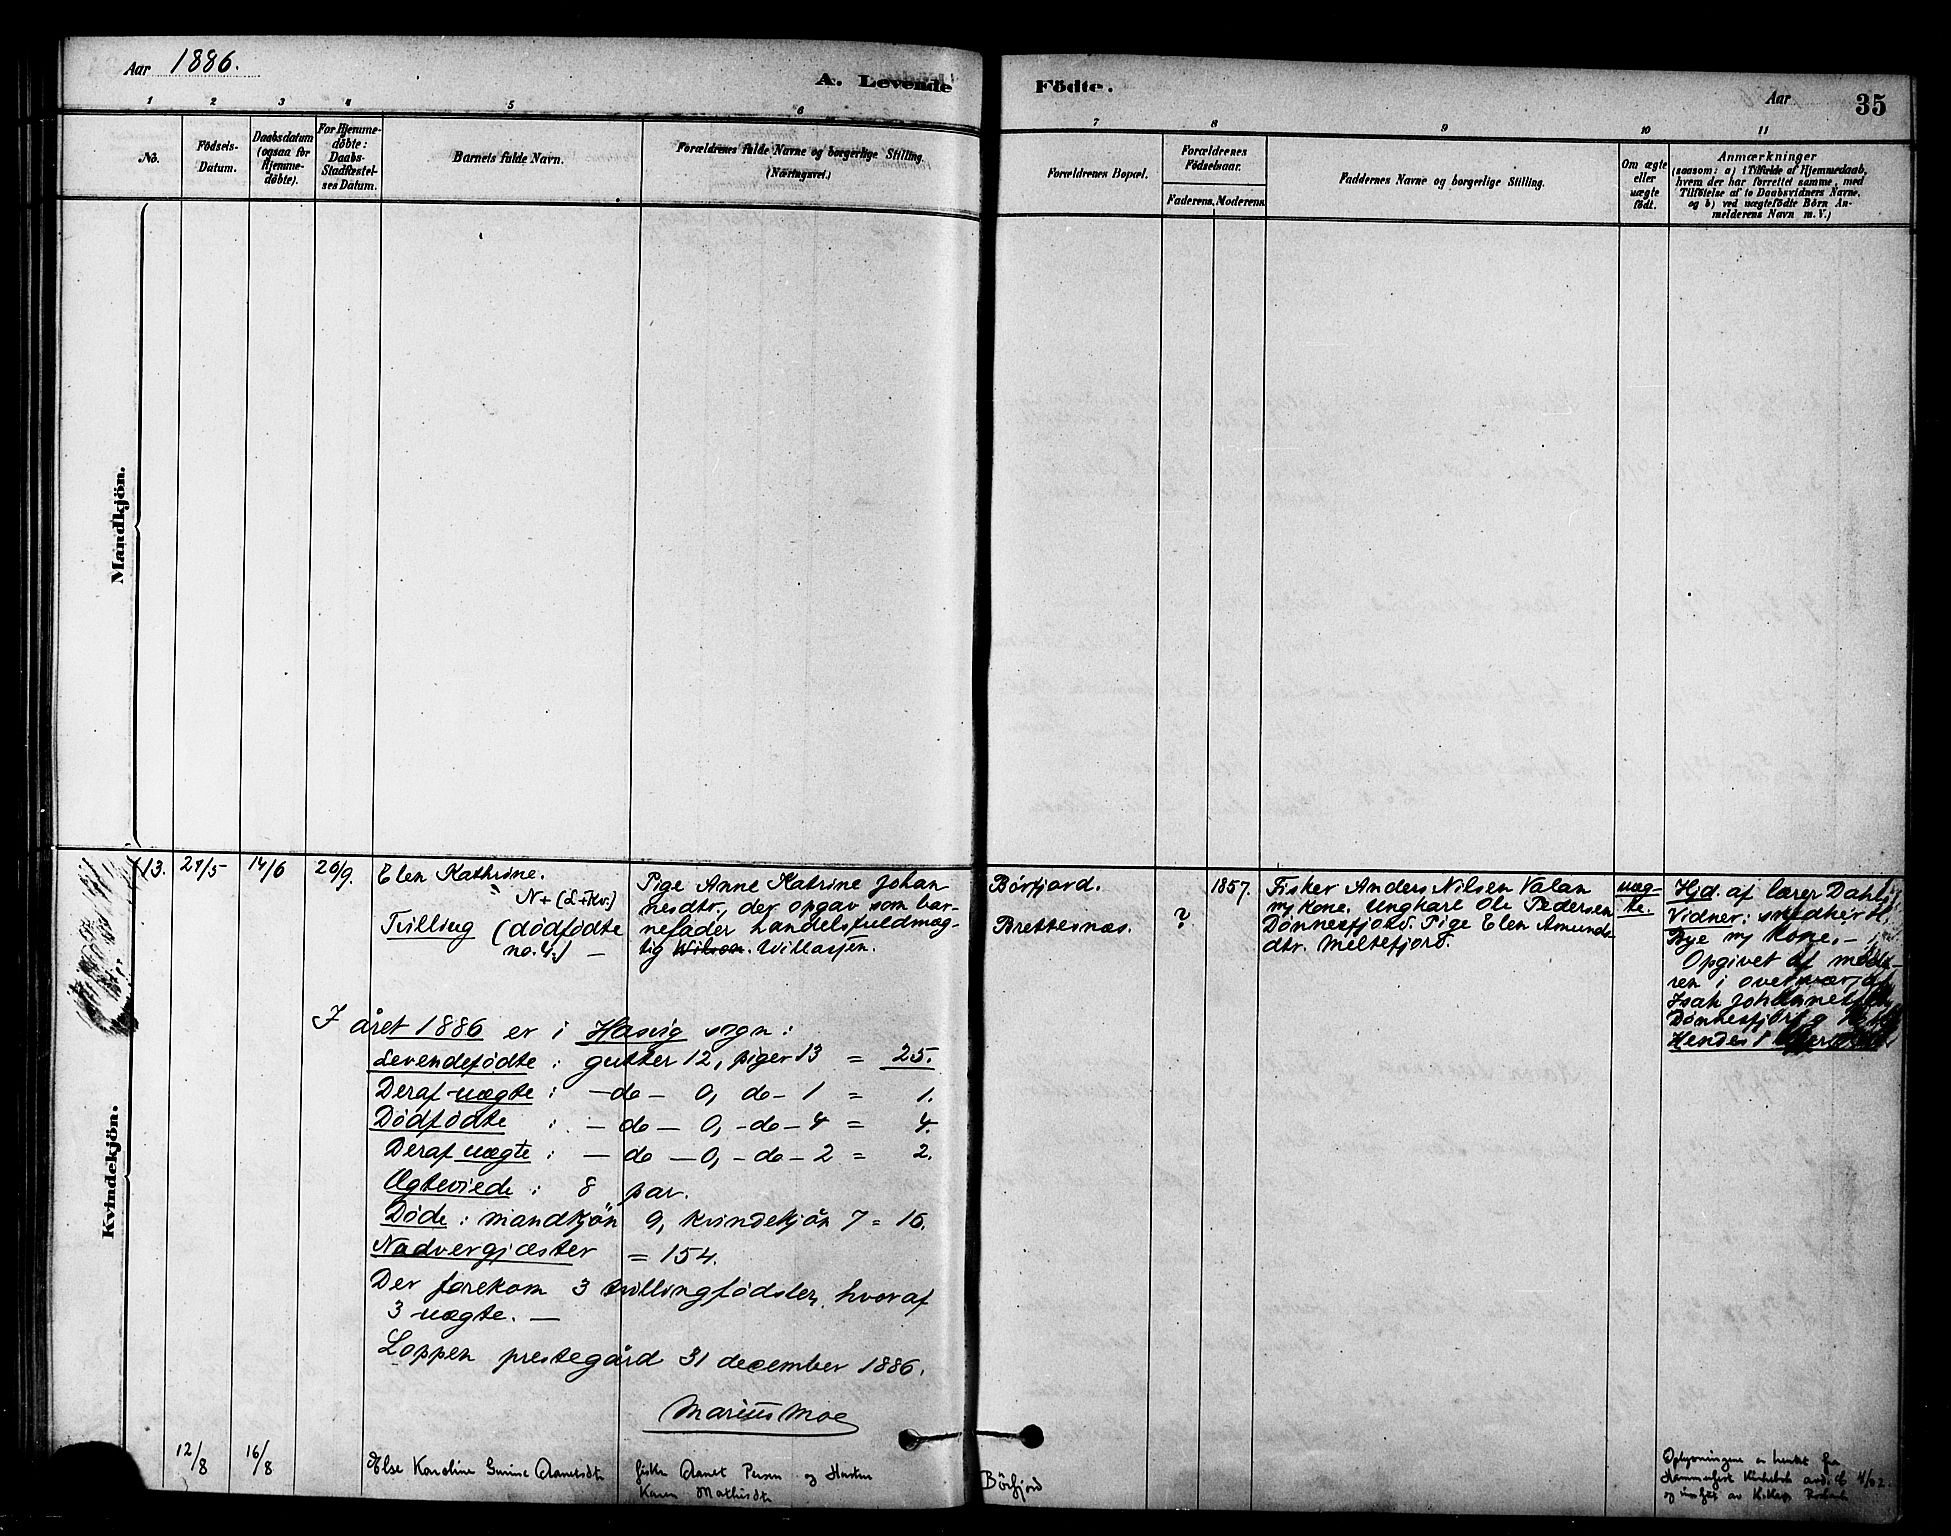 Aar 1886.
A. Levende Födte.
Aar
35
1 2 3 4 5 6 7 8 9 10 11
No.
Födsels-
Datum.
Daabsdatum
(ogsaa for
Hjemme-
döbte).
For Hjemme-
döbte:
Daabs-
Stadfæstel-
sesDatum.
Barnets fulde Navn.
Forældrenes fulde Navne og borgerlige Stilling.
(Næringsvei.)
Forældrenes Bopæl.
Forældrenes
Födselsaar.
Faderens. Moderens.
Faddernes Navne og borgerlige Stilling.
Om ægte
eller
uægte
födt.
Anmærkninger
(saasom: a) i Tilfælde af Hjemmedaab,
hvem der har forrettet samme, med
Tilföielse af to Daabsvidners Navne,
og b) ved uægtefödte Börn An-
melderens Navn m. V.)
Mandkjön.
Kvindekjön.
13.
14/6
20/9.
Elen Kathrine.
N + (L + Kv.)
Tvilling (dødfødte
no. 4.) –
Pige Anne Katrine Johan
nesdtr, der opgav som bar-
nefader handelsfuldmæg-
tig Willassen.
Børfjord.
Brettesnæs.
?
1857.
Fisker Anders Nilsen Valan
m/ kone. Ungkarl Ole Pedersen
Dønnesfjord. Pige Elen Amunds
dtr. Meltefjord.
uæg-
te.
Hjd. af lærer Dahl
Vidner:
Bye m/ kone. –
Opgivet af mode-
ren i overvær af
Isak Johannes
Dønnesfjord
Hendes
I året 1886 er i Hasvig sogn:
Levendefødte: gutter 12, piger 13 = 25.
Deraf uægte: – do – 0, do – 1 = 1.
Dødfødte : – do – 0, – do – 4 = 4.
Deraf uægte: – do – 0, – do – 2 = 2.
Ægteviede: 8 par.
Døde: mandkjön 9, kvindekjön 7 = 16.
Nadvergjæster = 154.
Der forekom 3 tvillingfødsler, hvoraf
3 uægte. –
Loppen prestegård 31 december 1886.
Marius Moe
12/8
16/8
Else Karoline
Persen og Hustru
Karen
Børfjord
Oplysningene er hentet fra
Hammerfest